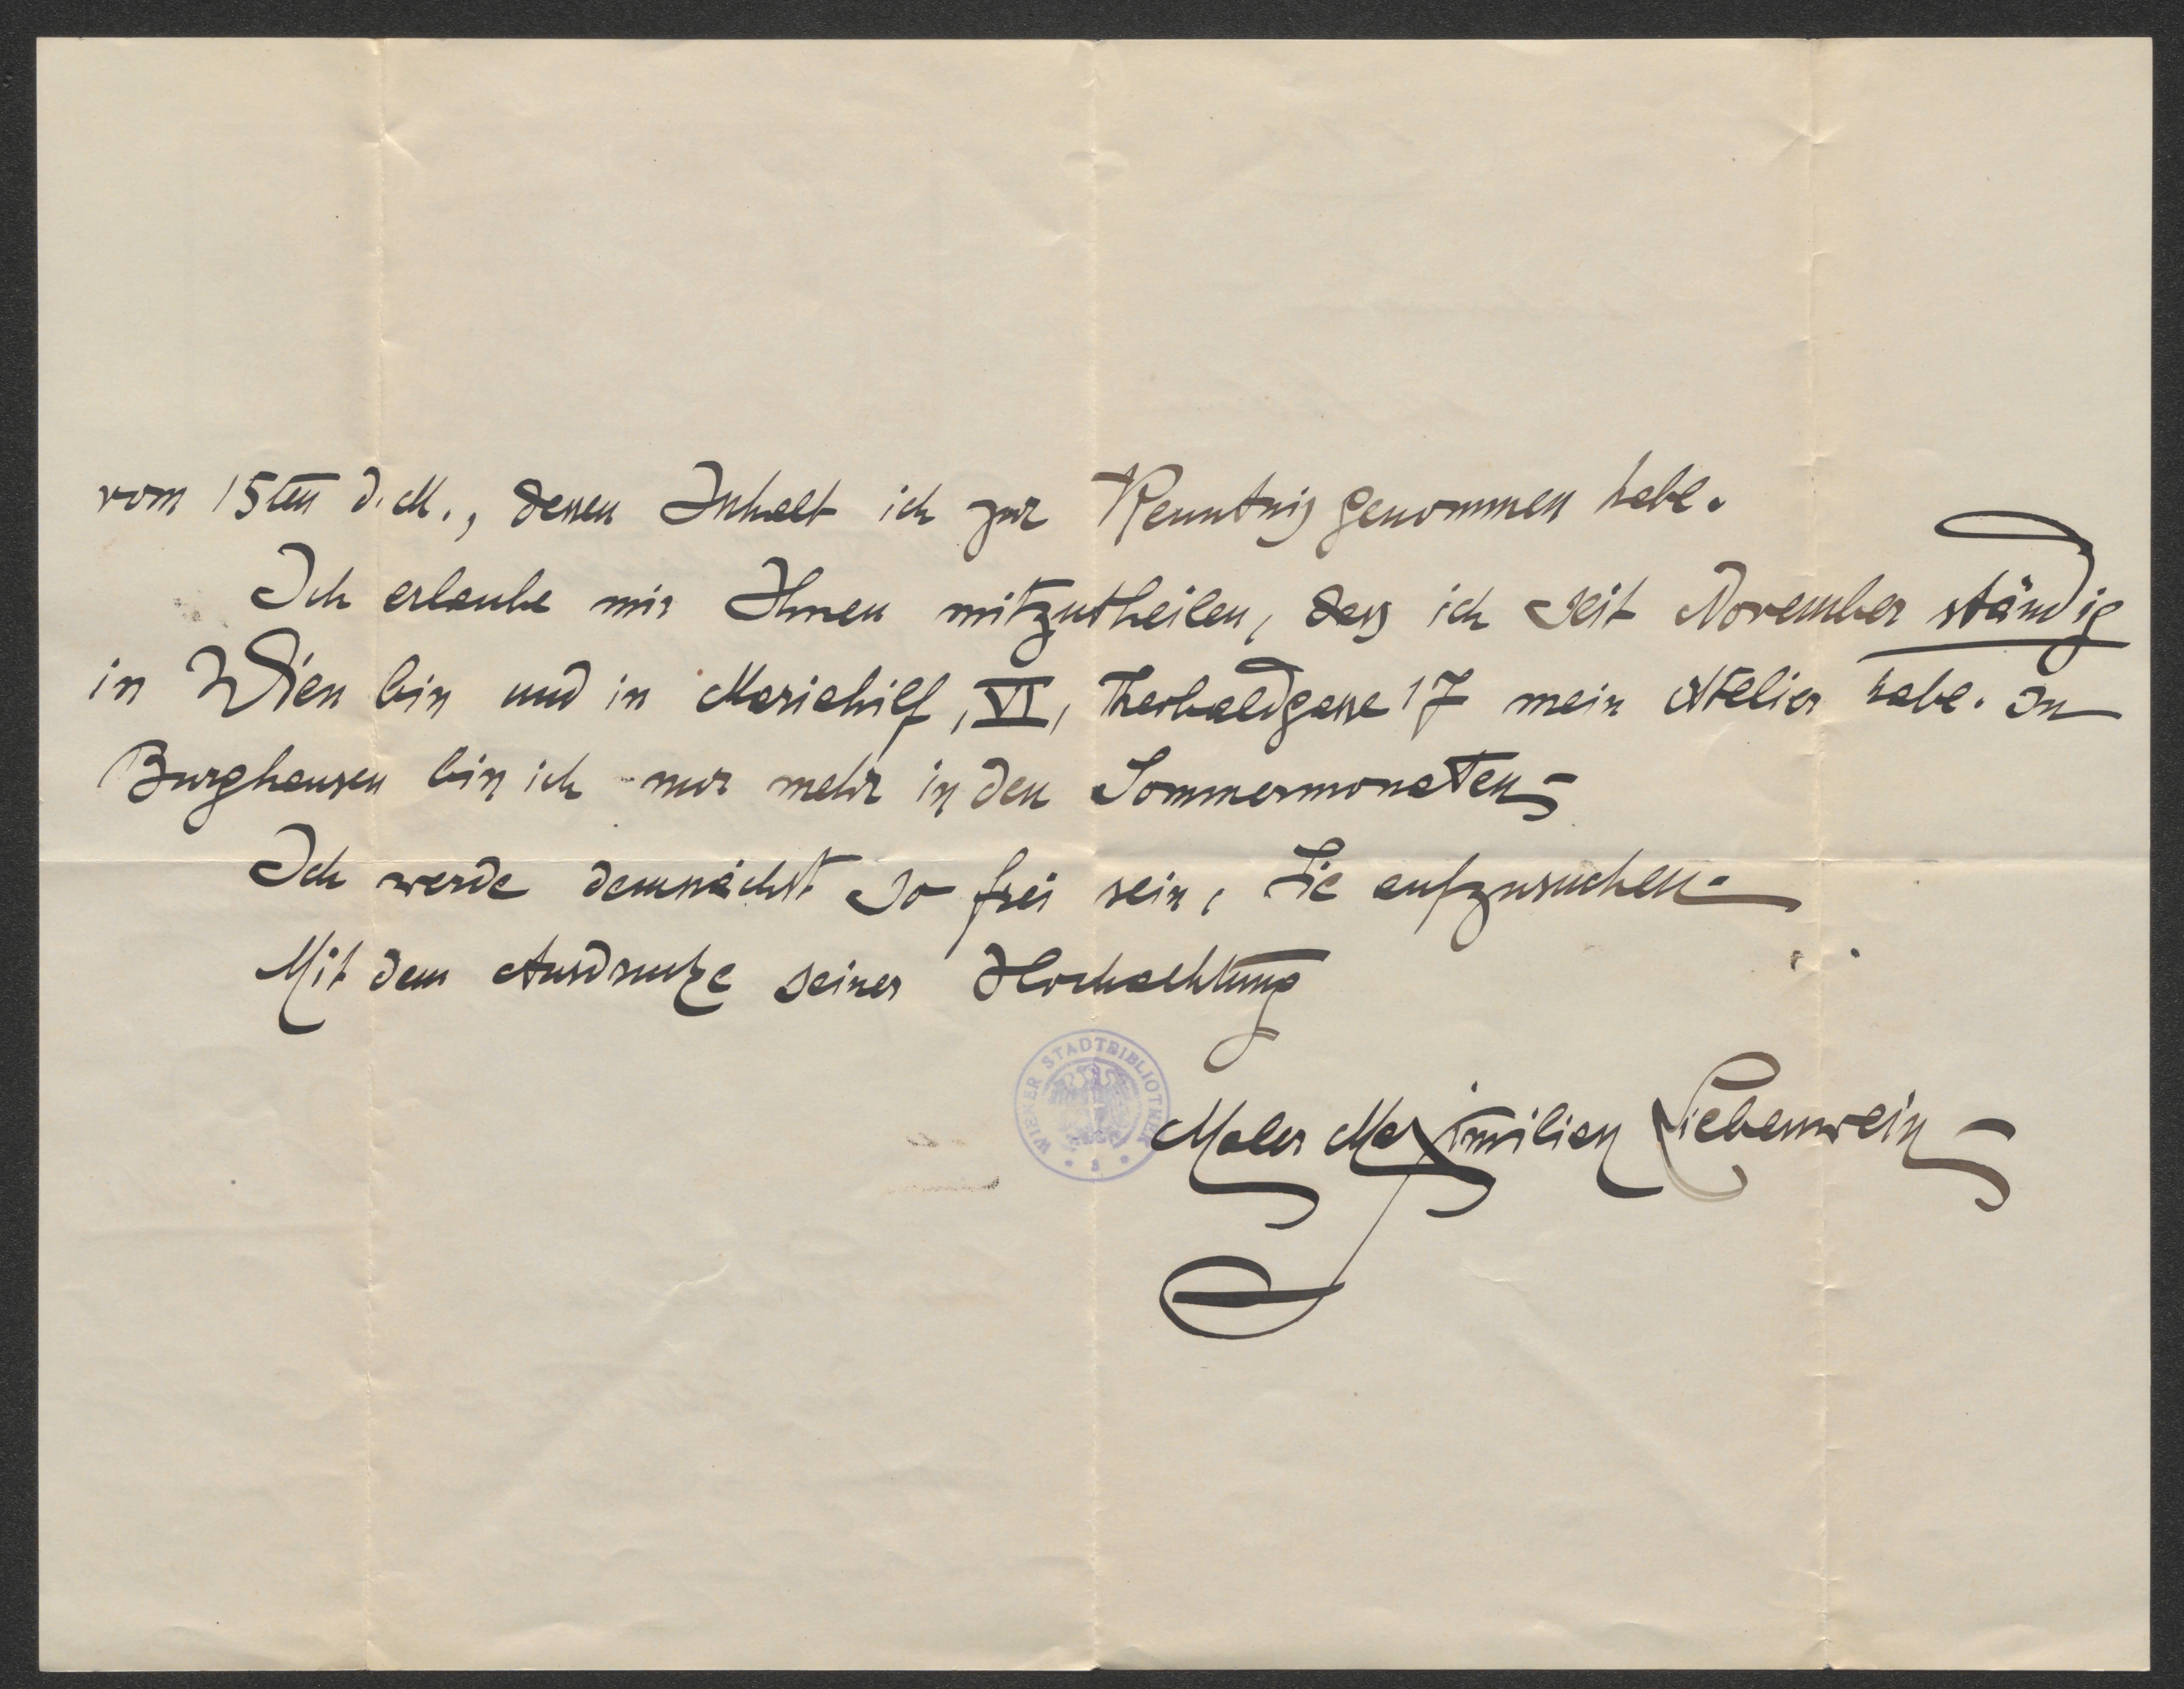 vom 15ten d. M., dessen Inhalt ich zur Kenntnis genommen habe.
Ich erlaube mir Ihnen mitzutheilen, dass ich seit November ständig
in Wien bin und in Mariahilf, VI, Theobaldgasse 17 mein Atelier habe. In
Burghausen bin ich nur mehr in den Sommermonaten
Ich werde demnächst so frei sein, Sie aufzusuchen.
Mit dem Ausdrucke seiner Hochachtung
WIENER STADTBIBLIOTHEK
Maler Maximilian Liebenwein